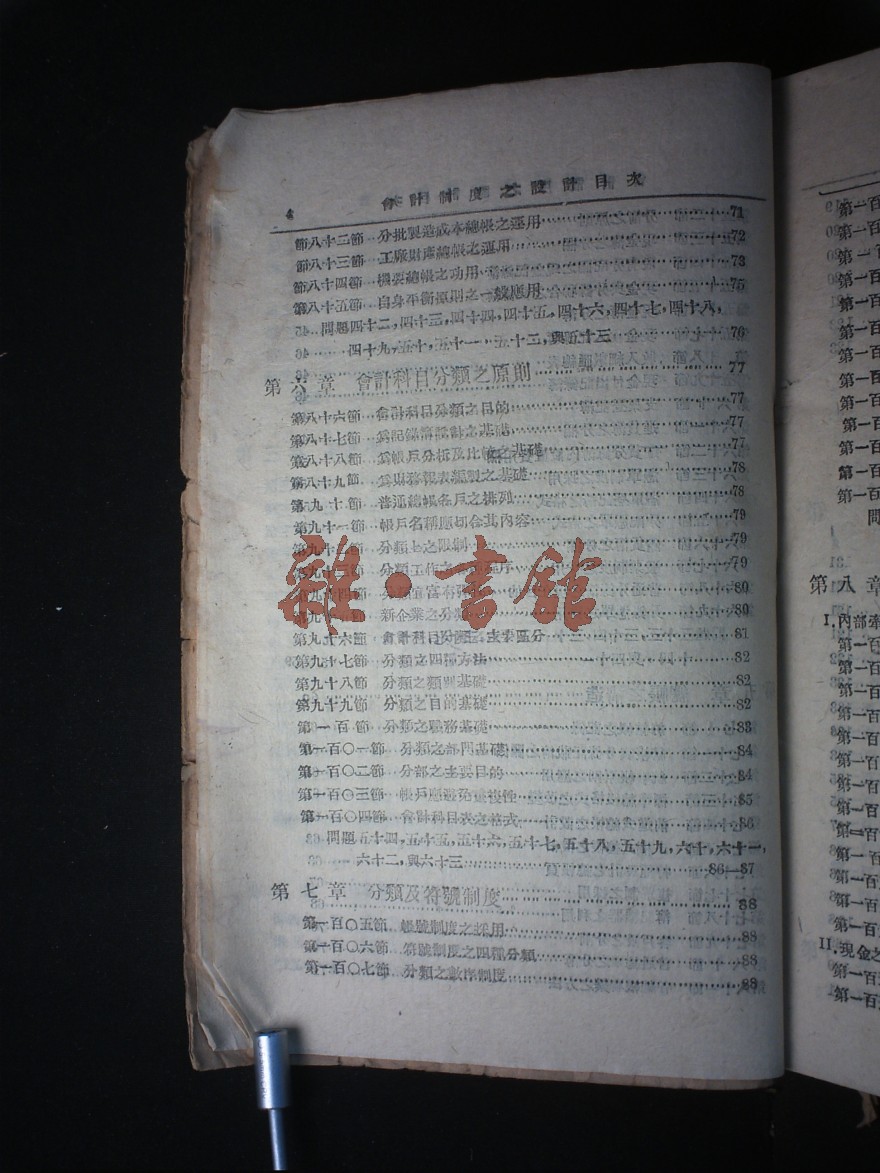 會計制度之設計目次
節八十二節 分批製造成本總帳之運用 71
節八十三節 工廠財產總帳之運用 72
節八十四節 機要總帳之功用 73
第八十五節 自身平衡原則之一般應用 75
問題四十二,四十三,四十四,四十五,四十六,四十七,四十八,
四十九,五十,五十一,五十二,與五十三 76
第六章 會計科目分類之原則 77
第八十六節 會計科目分類之目的 77
第八十七節 為記錄簿設計之基礎 77
第八十八節 為帳戶分析及比較之基礎 77
第八十九節 為財務報表類製之基礎 78
第九十節 普通總帳各戶之排列 78
第九十一節 帳戶名稱應切合其內容 79
第九十二節 分類上之限制 79
第九十三節 分類工作之 序 79
第九十四節 80
第九十五節 新企業之分類 80
第九十六節 會計科目分類之主要區分 81
第九十七節 分類之四種方法 82
第九十八節 分類之類別基礎 82
第九十九節 分類之目的基礎 82
第一百節 分類之職務基礎 83
第一百〇一節 分類之部門基礎 84
第一百〇二節 分部之主要目的 84
第一百〇三節 帳戶應避免重複性 85
第一百〇四節 會計科目表之格式 86
問題五十四,五十五,五十六,五十七,五十八,五十九,六十,六十一,
六十二,與六十三 86—87
第七章 分類及符號制度 88
第一百〇五節 帳號制度之採用 88
第一百〇六節 符號制度之四種分類 88
第一百〇七節 分類之數序制度 88
雜·書館
第八章
I.內部牽
II.現金之